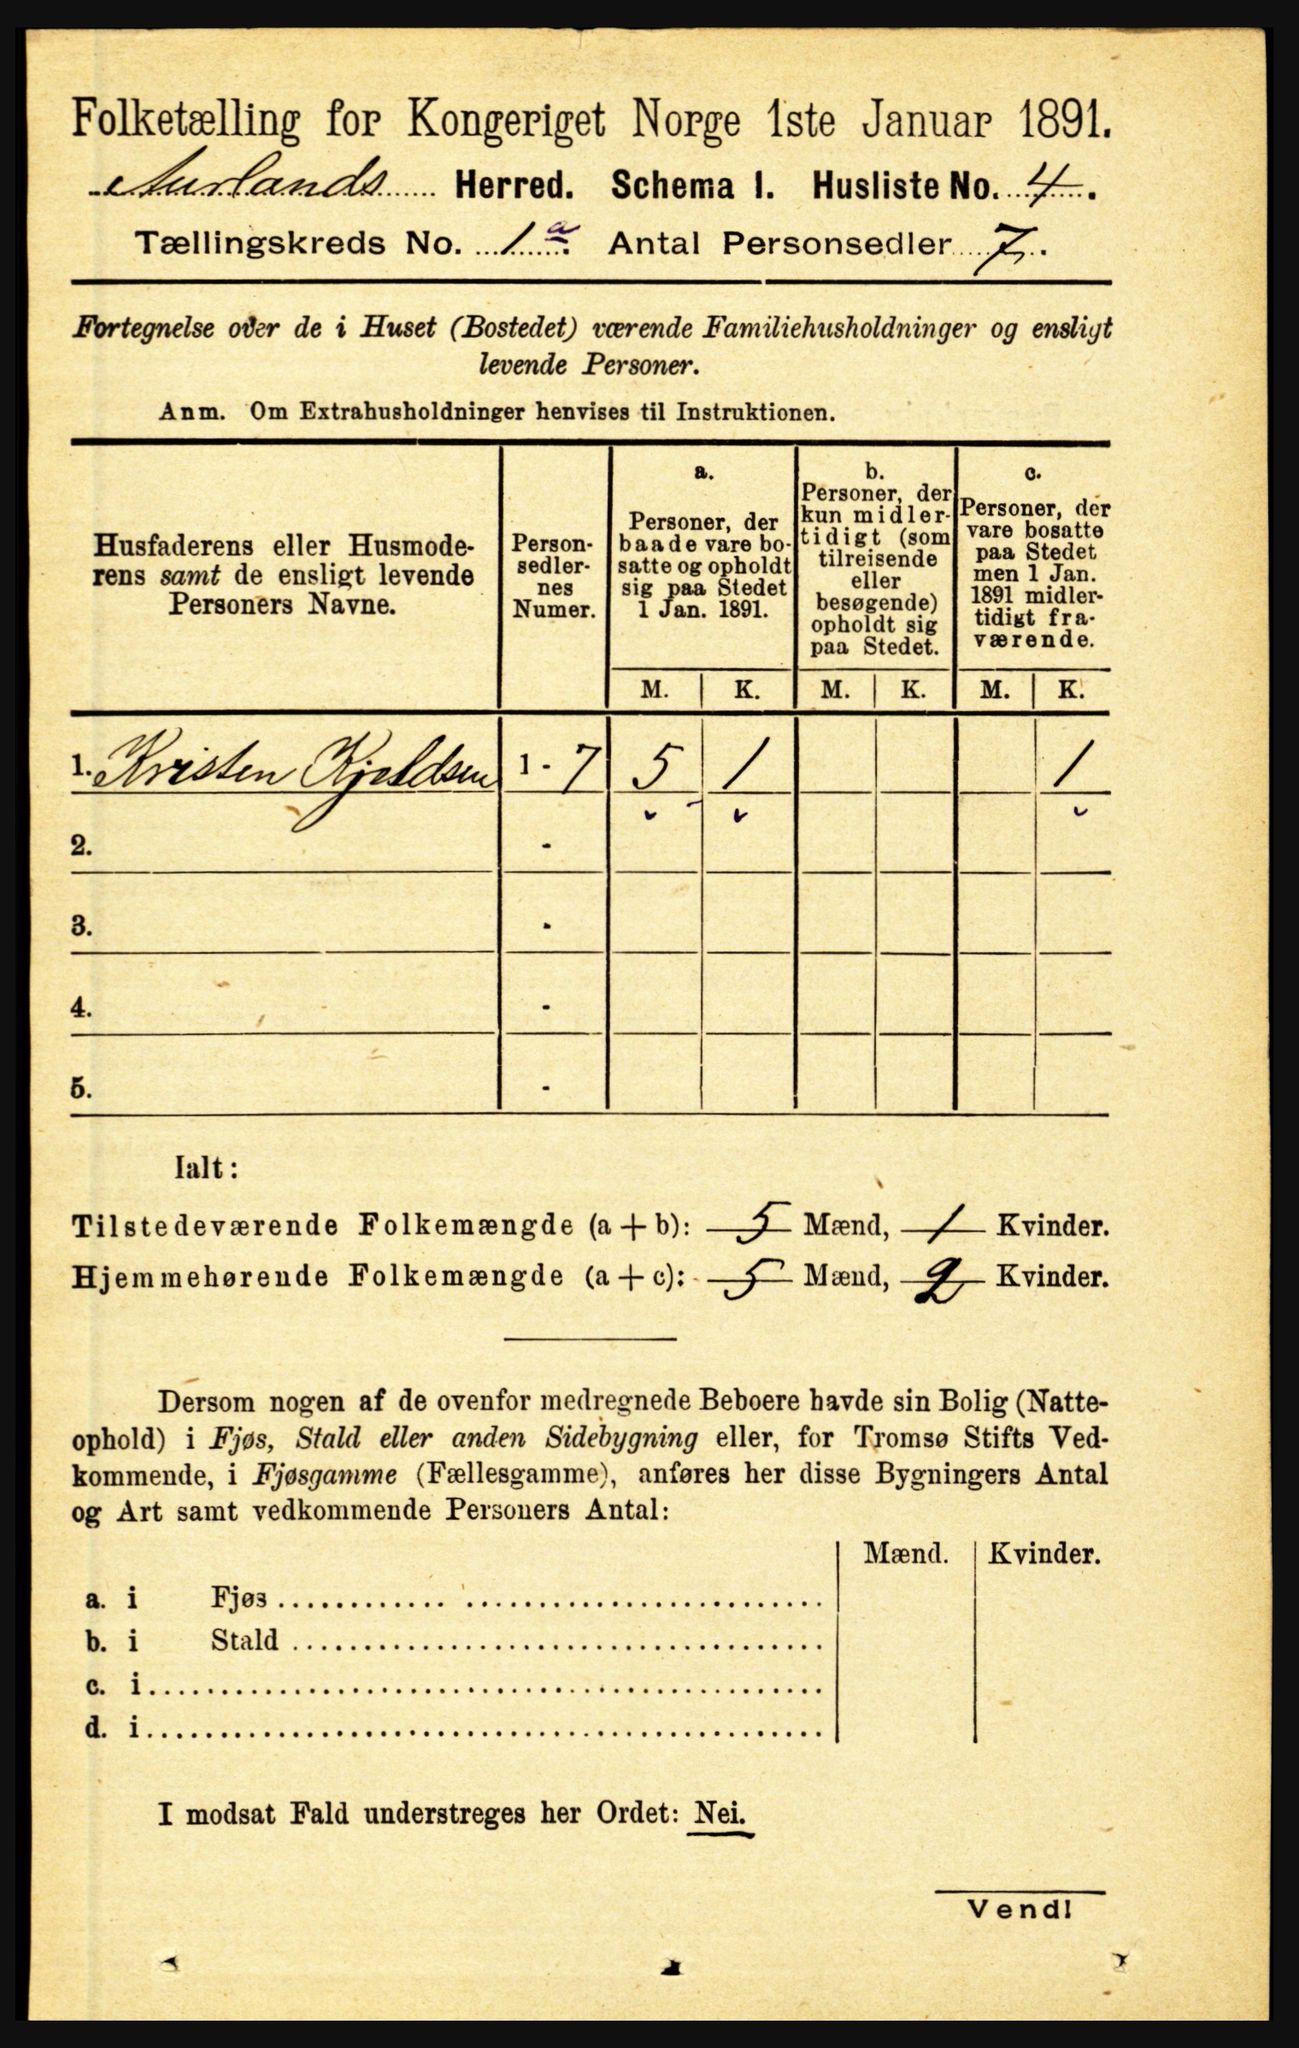 Folketælling for Kongeriget Norge 1ste Januar 1891.
Aurlands Herred. Schema I. Husliste No. 4.
Tællingskreds No. 1 a. Antal Personsedler 7.
Fortegnelse over de i Huset (Bostedet) værende Familiehusholdninger og ensligt
levende Personer.
Anm. Om Extrahusholdninger henvises til Instruktionen.
Husfaderens eller Husmode-
rens samt de ensligt levende
Personers Navne.
Person-
sedler-
nes
Numer.
a.
Personer, der
baade vare bo-
satte og opholdt
sig paa Stedet
1 Jan. 1891.
b.
Personer, der
kun midler-
tidigt (som
tilreisende
eller
besøgende)
opholdt sig
paa Stedet.
c.
Personer, der
vare bosatte
paa Stedet
men 1 Jan.
1891 midler-
tidigt fra-
værende.
M. K. M. K. M. K.
1. Kristen Kjeldsen 1 - 7 5 1 1
2. -
3. -
4. -
5. -
Ialt:
Tilstedeværende Folkemængde (a + b): 5 Mænd, 1 Kvinder.
Hjemmehørende Folkemængde (a + c): 5 Mænd, 2 Kvinder.
Dersom nogen af de ovenfor medregnede Beboere havde sin Bolig (Natte-
ophold) i Fjøs, Stald eller anden Sidebygning eller, for Tromsø Stifts Ved-
kommende, i Fjøsgamme (Fællesgamme), anføres her disse Bygningers Antal
og Art samt vedkommende Personers Antal:
Mænd. Kvinder.
a. i Fjøs
b. i Stald
c. i
d. i
I modsat Fald understreges her Ordet: Nei.
Vend!